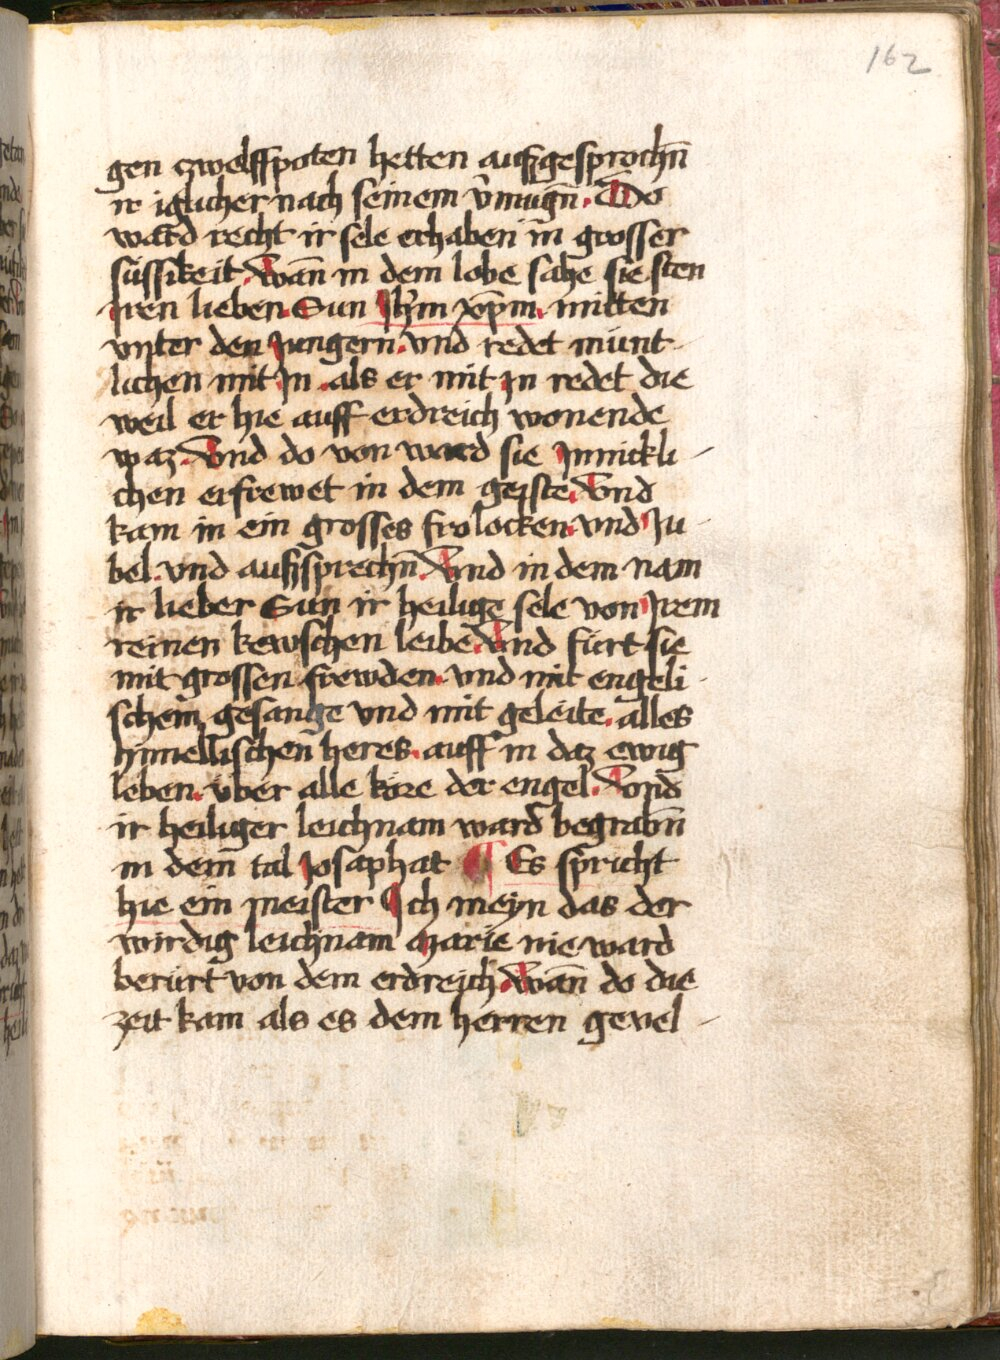 162
gen zwelffpoten hetten außgesprochn̄
ir iglicher nach seinem v̄mugn̄. Do
ward recht ir sele erhaben in grosser
süssikeit. Wān in dem lobe sahe sie sten
jren lieben Sun Jhm̄ xp̄m. mitten
vnter den Jungern. vnd redet münt
lichen mit Jn. als er mit jn redet die
weil er hie auff erdreich wonende
waz. Vnd do von ward sie Jnnickli-
chen erfrewet in dem geiste. Vnd
kam in ein grosses frolocken. vnd Ju-
bel. vnd außsprechn̄. Vnd in dem nam
ir lieber Sun ir heilige sele von Jrem
reinen kewschen leibe. Vnd fürt sie
mit grossen frewden. vnd mit engeli-
schem gesange vnd mit geleite. alles
himellischen heres. auff in daz ewig
leben. über alle köre der engel. Vond
ir heiliger leichnam ward begrabn̄
in dem tal Josaphat ¶ Es spricht
hie ein meister Ich meyn das der
wirdig leichnam Marie nie ward
berürt von dem erdreich. Wān do die
zeit kam als es dem herren gevel-